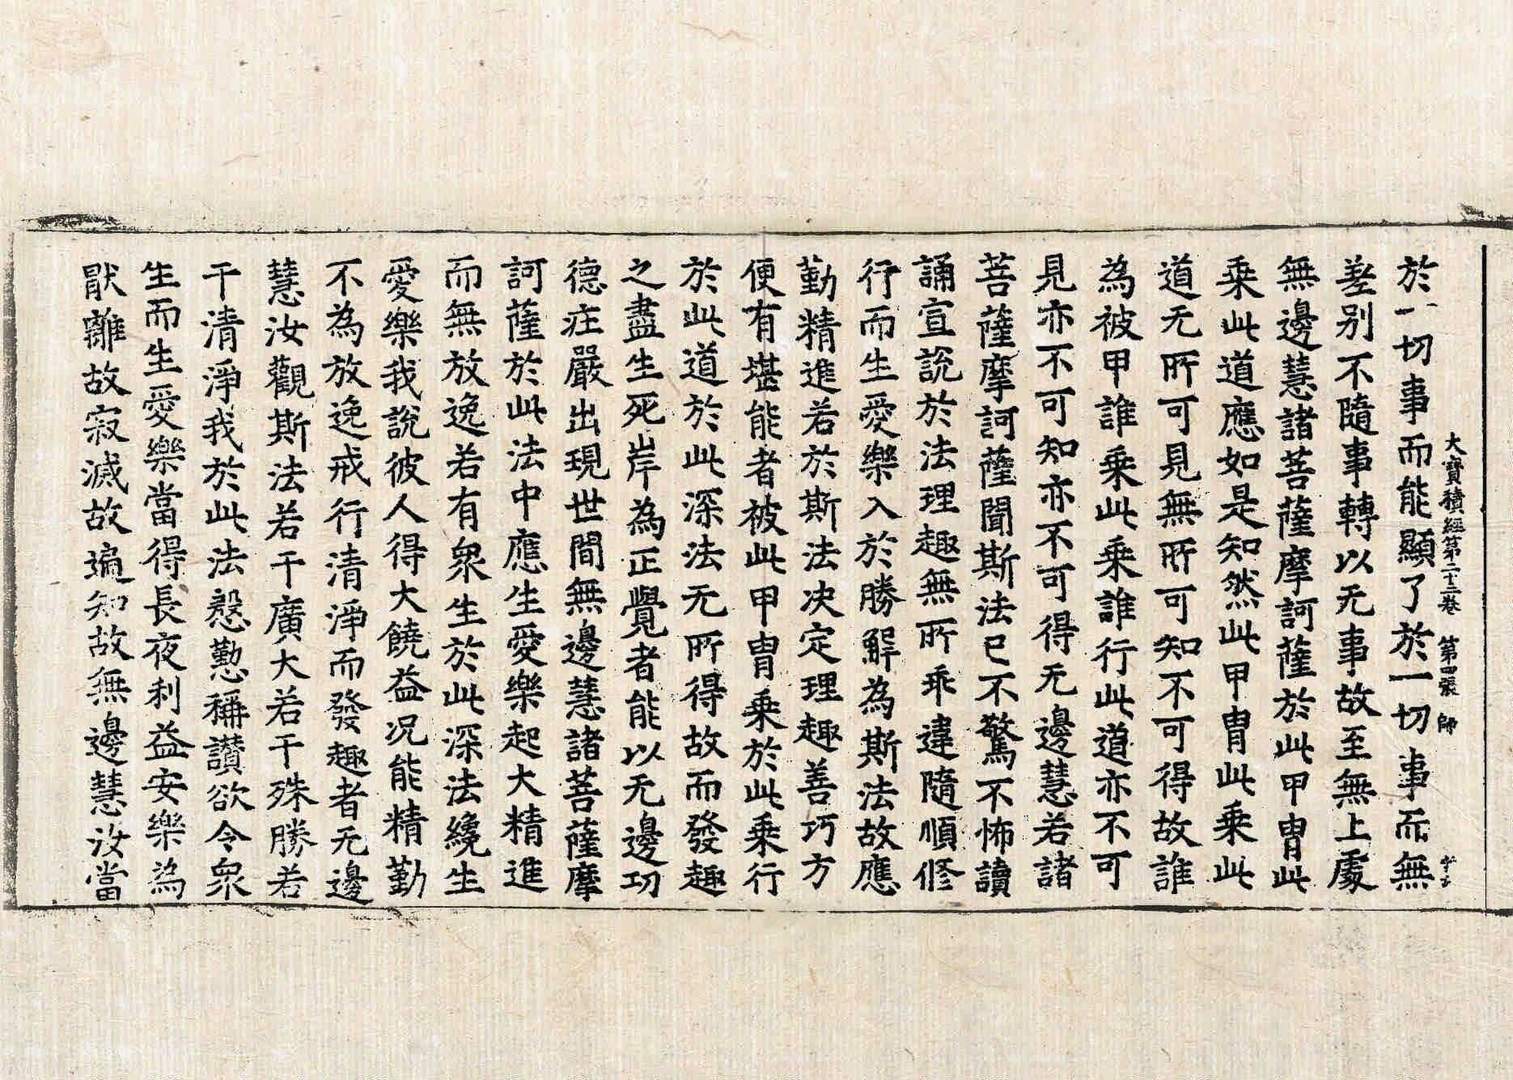 大寶積經第二十三卷 第四張 師
於一切事而能顯了於一切事而無
差别不隨事轉以无事故至無上處
無邊慧諸菩薩摩訶薩於此甲冑此
乗此道應如是知然此甲冑此乗此
道无所可見無所可知不可得故誰
為被甲誰乗此乗誰行此道亦不可
見亦不可知亦不可得无邊慧若諸
菩薩摩訶薩聞斯法已不驚不怖讀
誦宣說於法理趣無所乖違隨順修
行而生愛樂入於勝解為斯法故應
勤精進若於斯法决定理趣善巧方
便有堪能者被此甲冑乗於此乗行
於此道於此深法无所得故而發趣
之盡生死岸為正覺者能以无邊功
德庄嚴出現世間無邊慧諸菩薩摩
訶薩於此法中應生愛樂起大精進
而無放逸若有衆生於此深法纔生
愛樂我說彼人得大饒益况能精勤
不為放逸戒行清淨而發趣者无邊
慧汝觀斯法若干廣大若干殊勝若
干清淨我於此法慇懃稱讚欲令衆
生而生愛樂當得長夜利益安樂為
猒離故寂滅故遍知故無邊慧汝當